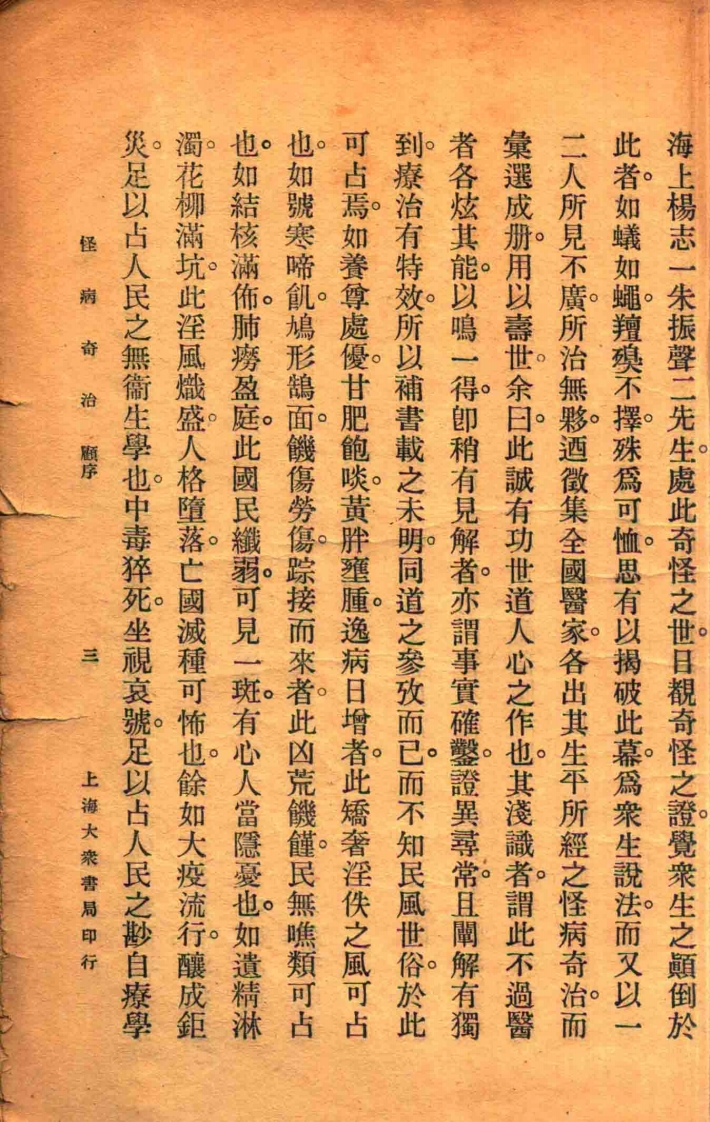 海上楊志一朱振聲二先生。處此奇怪之世。目覩奇怪之證。覺衆生之顚倒於
此者。如蟻如蠅。羶殠不擇。殊爲可恤。思有以揭破此幕。爲衆生說法。而又以一
二人所見不廣。所治無夥。迺徵集全國醫家。各出其生平所經之怪病奇治。而
彙選成册。用以壽世。余曰。此誠有功世道人心之作也。其淺識者。謂此不過醫
者各炫其能。以鳴一得。卽稍有見解者。亦謂事實確鑿。證異尋常。且闡解有獨
到。療治有特效。所以補書載之未明。同道之參攷而已。而不知民風世俗。於此
可占焉。如養尊處優。甘肥飽啖。黃胖壅腫。逸病日增者。此矯奢淫佚之風可占
也。如號寒啼飢。鳩形鵠面。饑傷勞傷。踪接而來者。此凶荒饑饉。民無噍類可占
也。如結核滿佈。肺癆盈庭。此國民纖弱。可見一斑。有心人當隱憂也。如遺精淋
濁。花柳滿坑。此淫風熾盛。人格墮落。亡國滅種可怖也。餘如大疫流行。釀成鉅
災。足以占人民之無衞生學也。中毒猝死。坐視哀號。足以占人民之尠自療學
怪病奇治 顧序 三 上海大衆書局印行